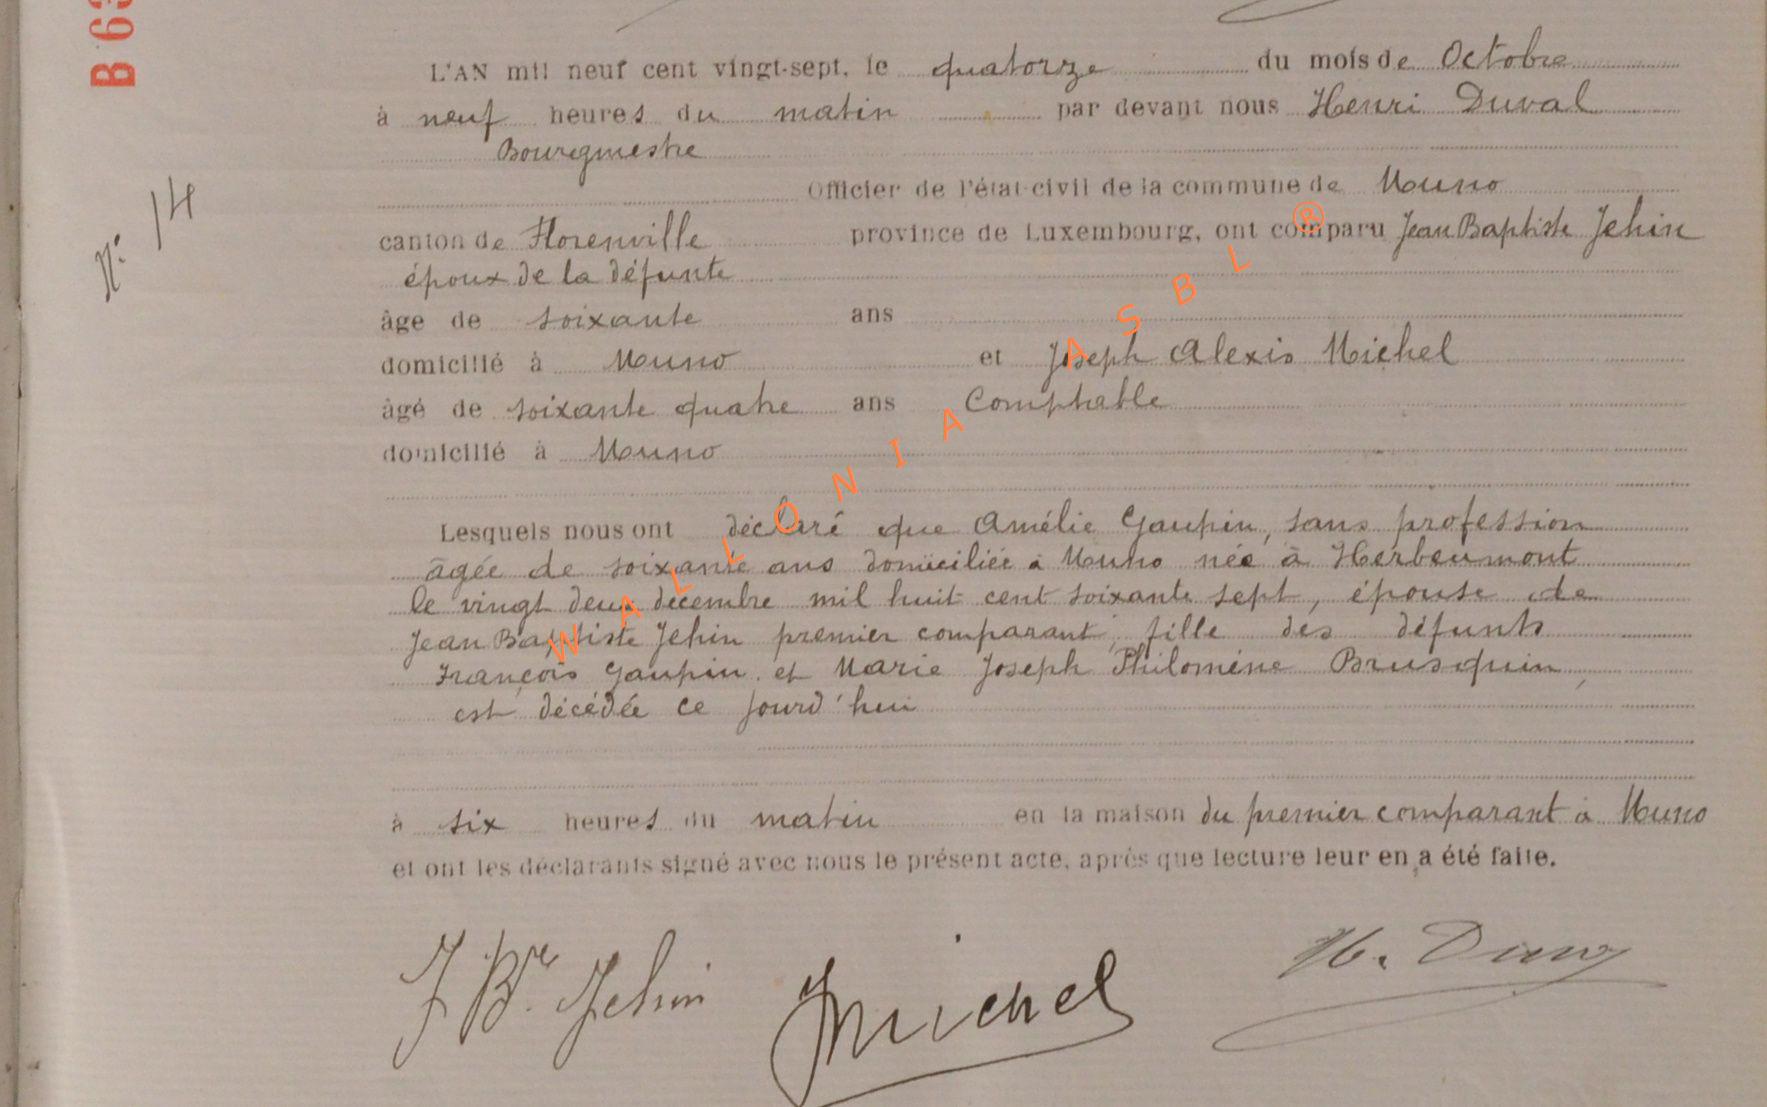 B 63
N° 14
L'AN mil neuf cent vingt-sept, le quatorze du mois de Octobre
à neuf heures du matin par devant nous Henri Duval
Bourgmestre
Officier de l'état-civil de la commune de Muno
canton de Florenville province de Luxembourg, ont comparu Jean Baptiste Jehin
époux de la défunte
âge de soixante ans
domicilié à Muno et Joseph Alexis Michel
âgé de soixante quatre ans Comptable
domicilié à Muno
Lesquels nous ont déclaré que Amélie Gaupin, sans profession
âgée de soixante ans domiciliée à Muno née à Herbeumont
le vingt deux décembre mil huit cent soixante sept, épouse de
Jean Baptiste Jehin premier comparant, fille des défunts
François Gaupin et Marie Joseph Philomène Brusquin,
est décédée ce jourd'hui
à six heures du matin en la maison du premier comparant à Muno
et ont les déclarants signé avec nous le présent acte, après que lecture leur en a été faite.
J Bte Jehin JMichel H. Duval
WALLONIA ASBL ®